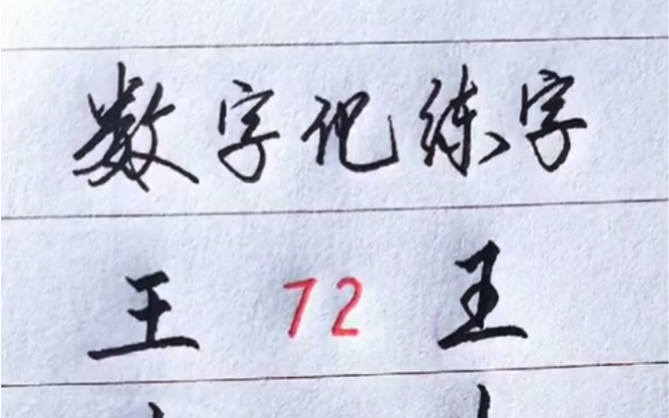 数字记练字
王 72 王